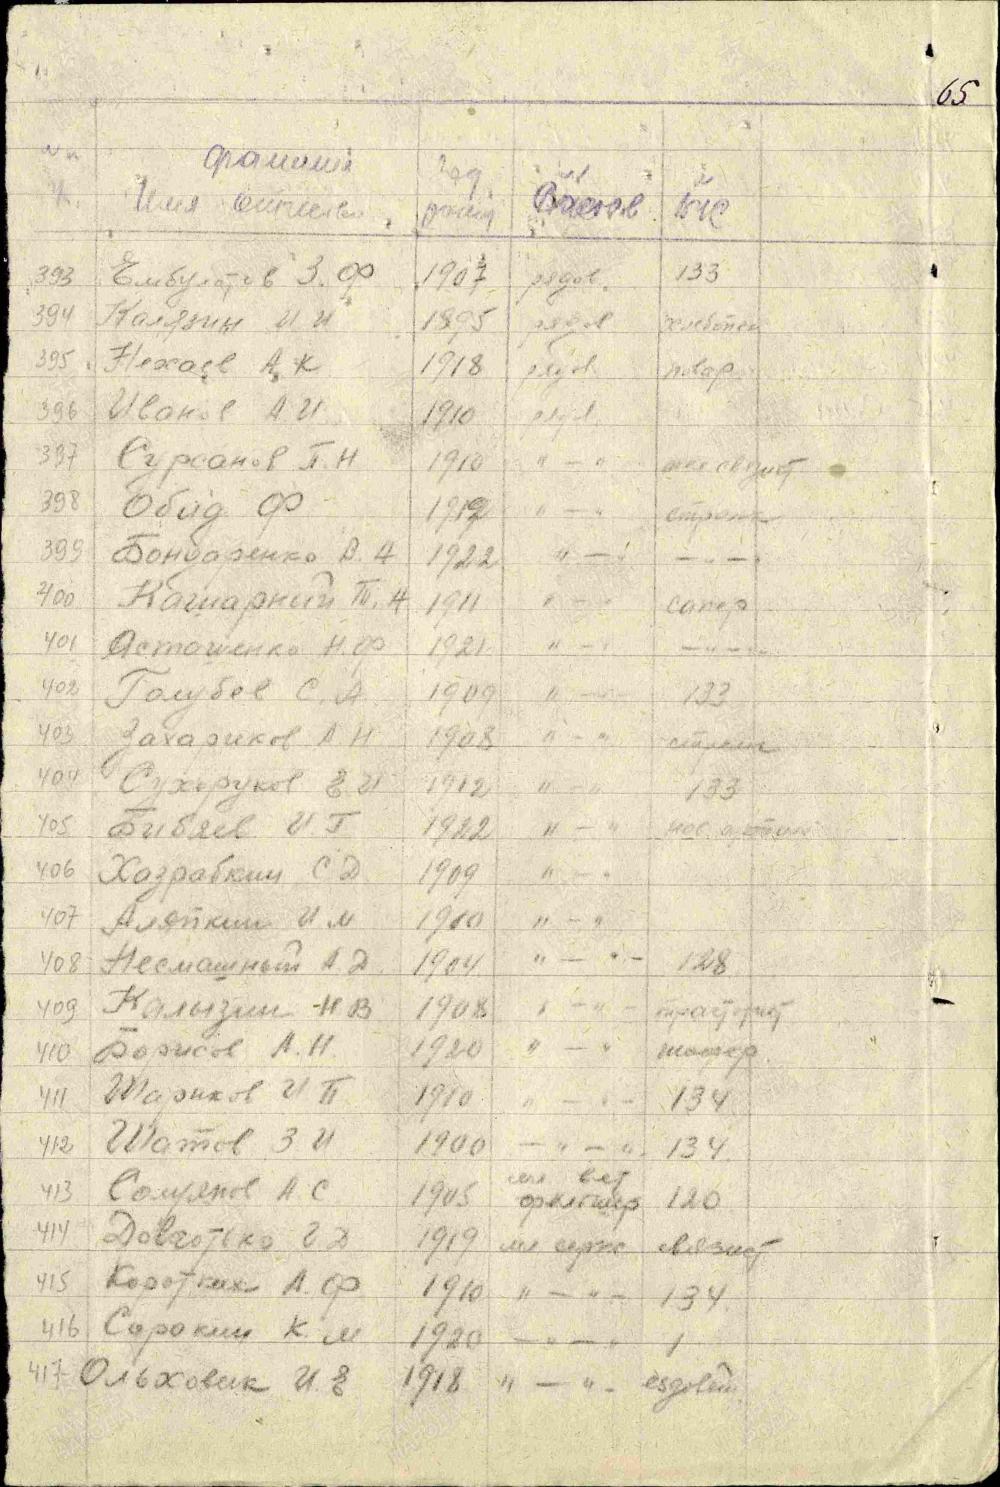 65
№ п/п фамилия Имя отчество год рожд в/звание ВУС
393 Ембулатов З. Ф 1907 рядов. 133
394 Калязин И И 1895 рядов хлебопек
395 Нехаев А. К 1918 рядов повар
396 Иванов А. И. 1910 ряд.
397 Сурсанов П. Н 1910 " — "
398 Обид Ф 1912 " — "
399 Бондаренко А. А 1922 " — " — " —
400 Кашарный Т. А 1911 " — " сапер
401 Асташенко Н. Ф 1921 " — " — " —
402 Голубев С. А 1909 " — " 133
403 Захариков А Н 1908 " — " стрелк
404 Сухоруков Е И 1912 " — " 133
405 Бибяев И. Г 1922 " — "
406 Хазрабкин С Д 1909 " — "
407 Аляпкин И М 1900 " — "
408 Несмашный А Д 1904 " — " — 128
409 Калызин Н В 1908 " — " — тракторист
410 Борисов А. Н. 1920 " — " шофер
411 Шариков И П 1910 " — " — 134
412 Шатов З И 1900 — " — " 134.
413 Солуянов А. С 1905 мл вет фельшер 120
414 Довготько Г Д 1919 мл серж связист
415 Коротких А. Ф 1910 " — " — 134
416 Сорокин К. М 1920 — " — " 1
417 Ольховик И. Е 1918 " — " — ездовой